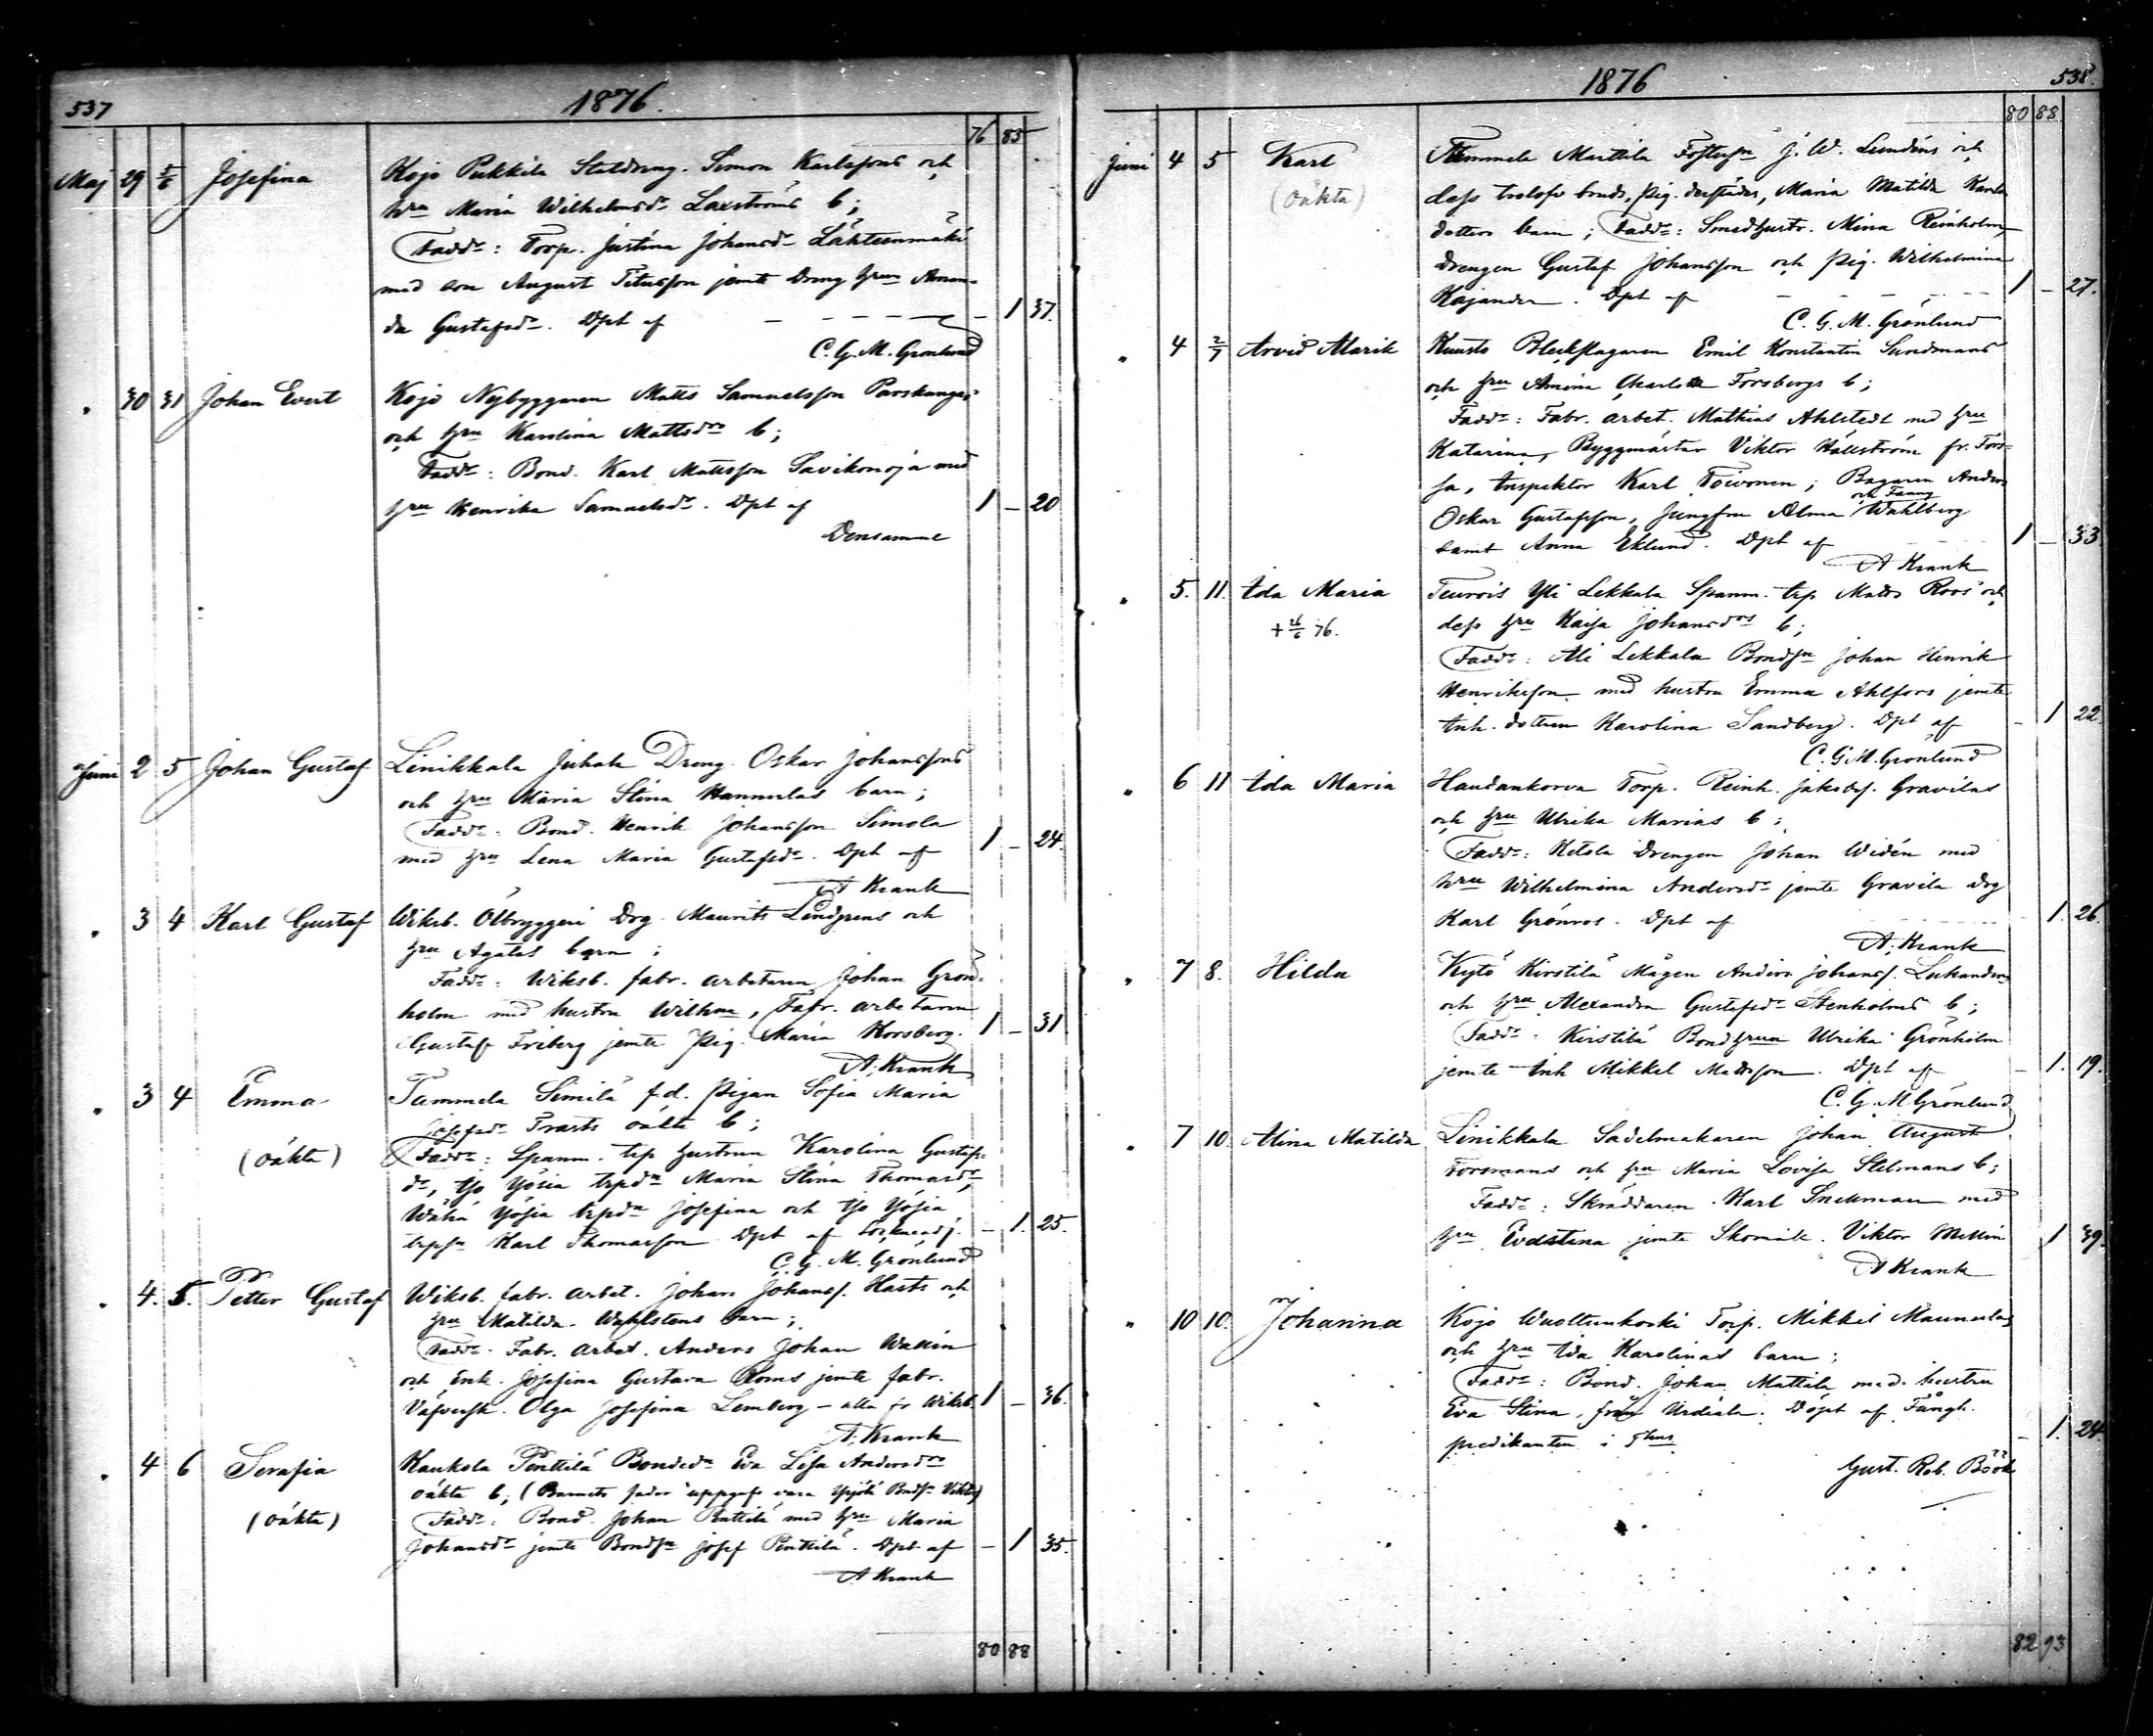 537
1876.
76 85
Maj 29 5/6 Josefina Kojo Pukkila Staldreng. Simon Karlssons och
hru Maria Wilhelmsdr Laxströms b;
Fadd: Torp. Justina Johansdr Lähteenmäki
med son August Titusson jemte Dreng hrun Aman-
da Gustafsdr. Dpt af – 1 37.
C. G. M. Grönlund
" 30 31 Johan Evert Kojo Nybyggaren Matts Samuelsson
och hru Karolina Mattsdrs b;
Fadd: Bond. Karl Mattsson Savikonoja med
hru Henrika Samuelsdr. Dpt af 1 – 20
Densamme
Juni 2 5 Johan Gustaf Linikkala Juhala Dreng Oskar Johanssons
och hru Maria Stina Hannulas barn;
Fadd: Bond. Henrik Johansson Simola
med hru Lena Maria Gustafsdr. Dpt af 1 – 24.
A Krank
" 3 4 Karl Gustaf Wiksb. Ölbryggeri Drg. Maurits Lindgrens och
hru Agatas barn;
Fadd: Wiksb. fabr. arbetaren Johan Grön-
holm med hustru Wilhna, Fabr. arbetaren
Gustaf Friberg jemte Pig. Maria Korsberg. 1 – 31
A. Krank
" 3 4 Emma Tammela Simila f.d. Pigan Sofia Maria
(oäkta) Josefsdr Trasts oäkta b;
Fadd: Spanm. trp hustrun Karolina Gustafs-
dr, Iso Yösia trpdr Maria Stina Thomasdr,
Wähä Yösia trpdr Josefina och Iso Yösia
trpsn Karl Thomasson Dpt af Sockneadj. – 1. 25.
C. G. M. Grönlund
" 4. 5. Petter Gustaf Wiksb. fabr. arbet. Johan Johanss. Hasts och
hru Matilda Wahlstens barn;
Fadd: Fabr. arbet. Anders Johan Wallin
och Enk. Josefina Gustava Roms jemte fabr.
Väfversk. Olga Josefina Lemberg – alla fr Wiksb. 1 – 36.
A. Krank
" 4 6 Serafia Kaukola Penttilä Bondedr Eva Lisa Andersdrs
oäkta b; (Barnets fader uppgafs vara Bndsn Viktor)
(oäkta) Fadd: Bond. Johan Penttilä med hru Maria
Johansdr jemte Bondsn Josef Penttilä. Dpt af – 1 35.
A Krank
80 88
1876
538.
80 88
Juni 4 5 Karl Tammela Marttila Fostersn J. W. Lundéns och
(oäkta) dess trolofv. bruds, Pig. derstädes, Maria Matilda Karls-
dotters barn; Fadd: Smedhustr. Mina Reinholm,
Drengen Gustaf Johansson och Pig. Wilhelmina
Kajander. Dpt af 1 – 27.
C. G. M. Grönlund
" 4 2/7 Arvid Alarik Kuusto Bleckslagaren Emil Konstantin Sundmans
och hru Amina Charlotta Forsbergs b;
Fadd: Fabr. arbet. Mathias Ahlstedt med hru
Katarina, Byggmästar Viktor Hällström fr. Fors-
sa, Inspektor Karl Toivonen; Bagaren Anders
Oskar Gustafsson, Jungfru Alma och Fanny Wahlberg
samt Anna Eklund. Dpt af 1 – 33.
A Krank
" 5. 11. Ida Maria Teurois Yli Lekkala Spanm. trp Matts Roos och
+ 26/6 76. dess hru Kaisa Johansdrs b;
Fadd: Ali Lekkala Bondsn Johan Henrik
Henriksson med hustru Emma Ahlfors jemte
Inh. dottren Karolina Sandberg. Dpt af – 1 22.
C. G. M. Grönlund
" 6 11 Ida Maria Haudankorva Torp. Reinh. Jakobss. Gravilas
och hru Ulrika Marias b;
Fadd: Ketola Drengen Johan Widén med
hru Wilhelmina Andersdr jemte Gravila drg
Karl Grönros. Dpt af – 1. 26.
A. Krank
" 7 8. Hilda Kytö Kirstilä Mågen Anders Johanss. Lukanders
och hru Alexandra Gustafsdr Stenholms b;
Fadd: Kirstilä Bondhrun Ulrika Grönholm
jemte Inh Mikkel Mattsson. Dpt af – 1. 19.
C. G. M Grönlund
" 7 10. Alina Matilda Linikkala Sadelmakaren Johan August
Forsmans och hru Maria Lovisa Stelmans b;
Fadd: Skräddaren Karl Snellman med
hru Evastina jemte Skomak. Viktor Mellin 1 39.
A Krank
" 10 10. Johanna Kojo Wuoltunkoski Torp. Mikkel Maunulas
och hru Ida Karolinas barn;
Fadd: Bond. Johan Mattila med hustru
Eva Stina, från Urdiala. Döpt af Fångh.
predikanten i Thus – 1. 24.
Gust. Rob. Böök
82 93